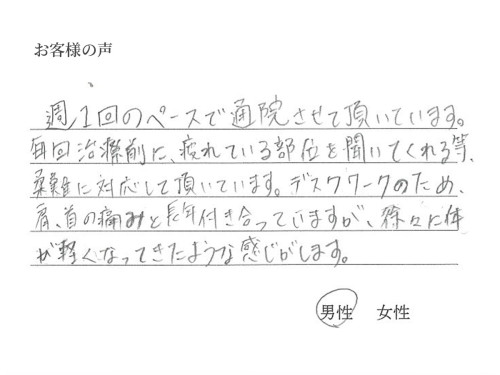 お客様の声
週1回のペースで通院させて頂いています。
毎回治療前に、疲れている部位を聞いてくれる等、
柔軟に対応して頂いています。デスクワークのため、
肩、首の痛みと長年付き合っていますが、徐々に体
が軽くなってきたような感じがします。
男性 女性